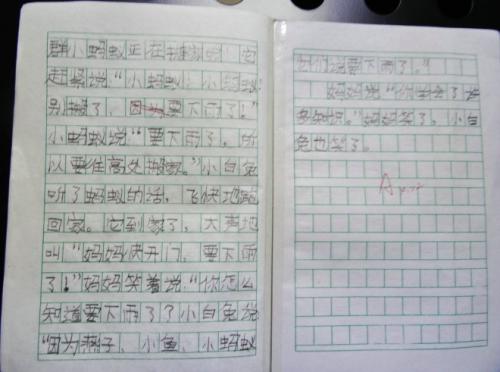 群小蚂蚁正在搬家呢！它
赶紧说“小蚂蚁！小蚂蚁
别搬了，因为要下雨了！”
小蚂蚁说“要下雨了。所
以要往高处搬家。”小白兔
听了蚂蚁的话，飞快地跑
回家。它到家了，大声地
叫“妈妈快开门，要下雨
了！”妈妈笑着说：“你怎么
知道要下雨了？小白兔说
“因为燕子、小鱼、小蚂蚁
他们说要下雨了。”
妈妈说“你学会了
知识。”妈妈笑了。小白
兔也笑了。
A